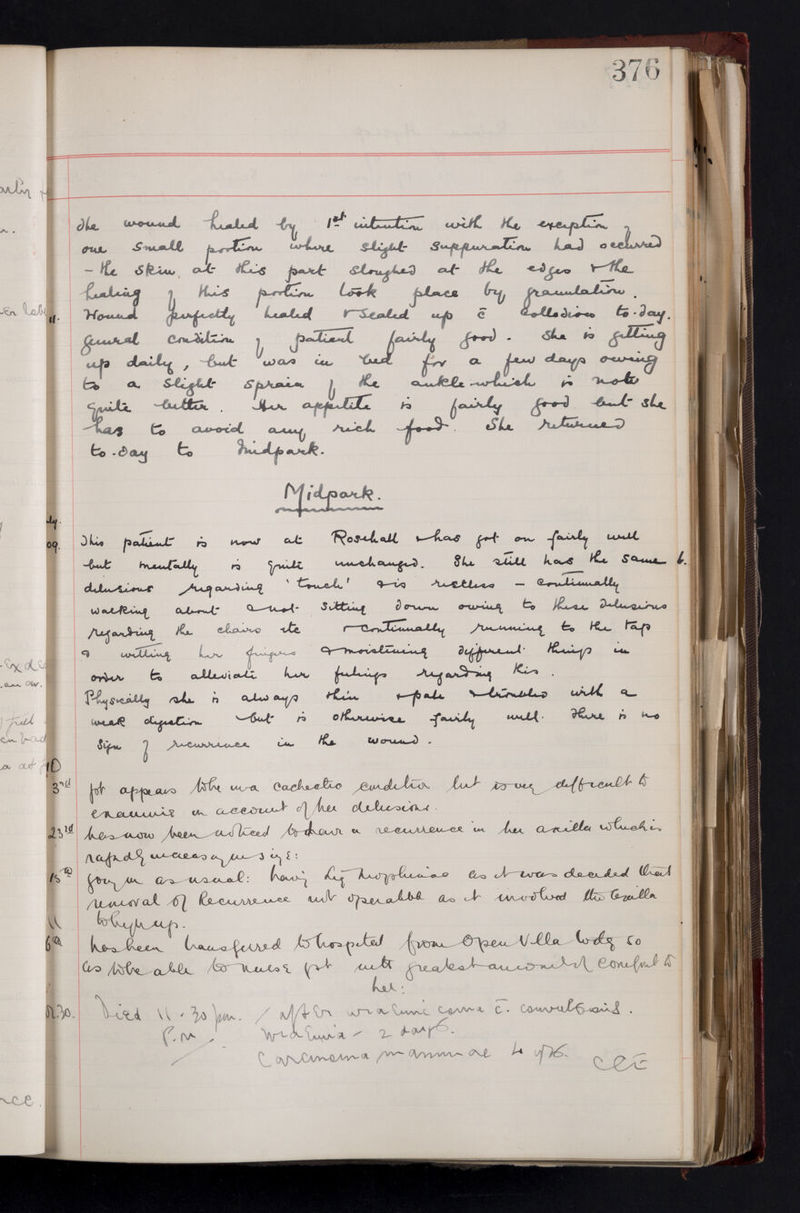 376
The wound healed by 1st intention with the exception of
one small portion where slight suppuration had occurred
- the skin at this part sloughed at the edges & the
healing of this portion took place by granulation.
11. Wound perfectly healed & sealed up c̄ collodion to-day.
General condition of patient fairly good. She is getting
up daily, but was in bed for a few days owing
to a slight sprain of the ankle which is now
quite better. Her appetite is fairly good but she
has to avoid any rich food. She returned
to-day to Midpark.
Midpark.
09. This patient is now at Rosehall & has got on fairly well
but mentally is quite unchanged. She still has the same
delusions regarding 'touch' & is restless - continually
walking about & not sitting down owing to these delusions
regarding the chairs etc & continually running to the tap
& wetting her fingers & moistening different things in
order to alleviate her feelings regarding this.
Physically she is always thin & pale & troubled with a
weak digestion but is otherwise fairly well. There is no
sign of recurrence in the wound.
10
3rd pt appears to be in a cachectic condition but is very difficult to
examine on account of her delusions.
23rd has now been noticed to have a recurrence in her axilla which is
rapidly increasing in size:
15th going on as usual: having as it was decided that
removal of Recurrence not operable as it involved the axilla
to high up.
11
6th has been transferred to hospital from Open Villa today so
as to be able to nurse pt with greatest amount of comfort to
her:
Died 11.30 pm. after uraemic coma c̄. convulsions.
P.M. Uraemia - 2 days.
Carcinoma mammae 4 yrs.